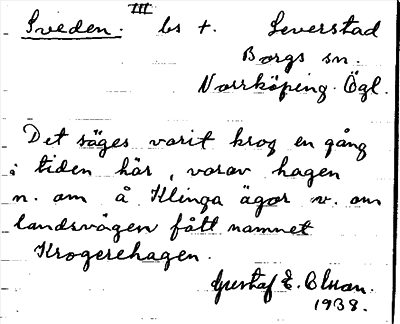 III
Sveden. bs t. Leverstad
Borgs sn.
Norrköping. Ögl.
Det säges varit krog en gång
i tiden här, varav hagen
n. om å Klinga ägor v. om
landsvägen fått namnet
Krogerehagen.
Gustaf E. Olsson.
1938.